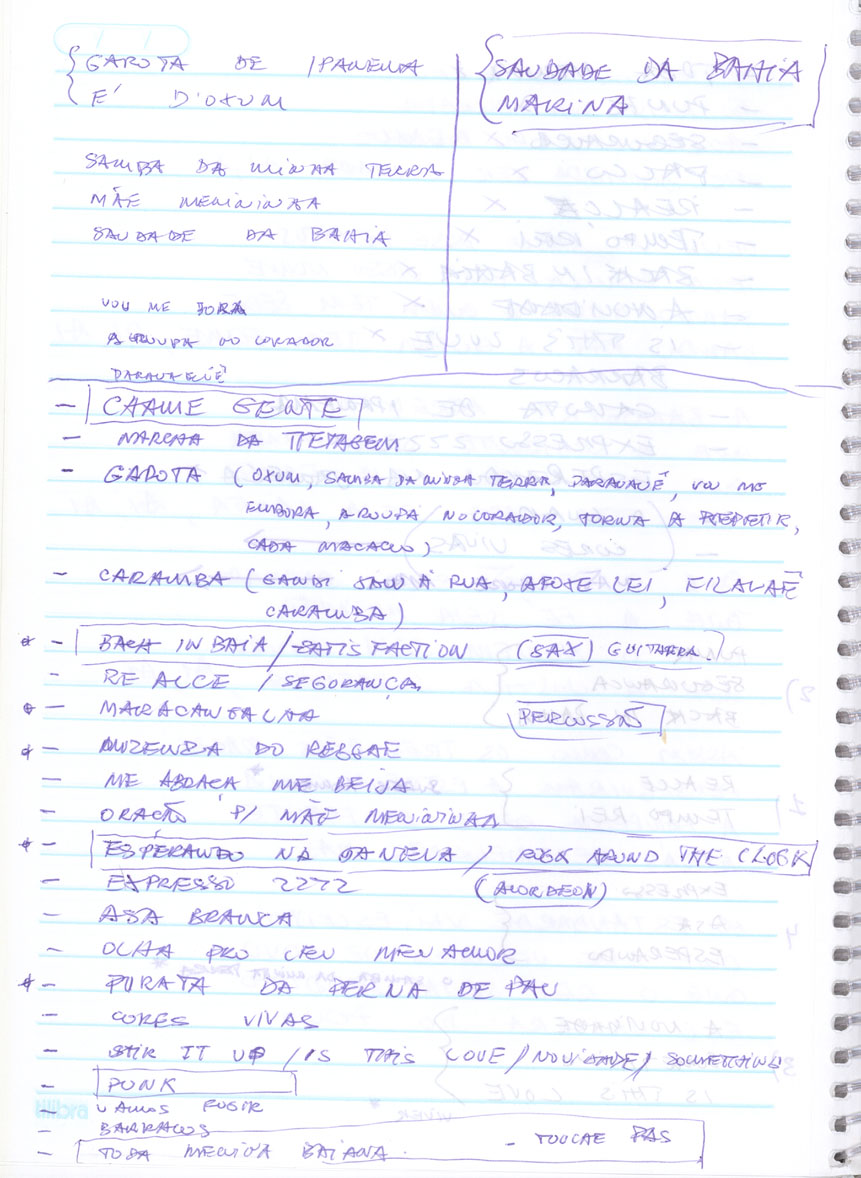 GAROTA DE IPANEMA
É D'OXUM
SAUDADE DA BAHIA
MARINA
SAMBA DA MINHA TERRA
MÃE MENININHA
SAUDADE DA BAHIA
VOU ME
A ROUPA DO CORADOR
PARANAUÊ
- CHAME GENTE
- MARCHA DA TIETAGEM
- GAROTA (OXUM, SAMBA DA MINHA TERRA, PARANAUÊ, VOU ME
EMBORA, A ROUPA NO CORADOR, TORNA A REPETIR,
CADA MACACO)
- CARAMBA (GANDI SAIU À RUA, AFOXE LEI, FILALAÊ
CARAMBA)
* - BACH IN BAIA / SATISFACTION (SAX) GUITARRA.
- REALCE / SEGURANÇA
* - MARACANGALHA PERCUSSÃO
* - MUZENZA DO REGGAE
- ME ABRAÇA ME BEIJA
- ORAÇÃO P/ MÃE MENININHA
* - ESPERANDO NA JANELA / ROCK AROUND THE CLOCK
- EXPRESSO 2222 (ACORDEON)
- ASA BRANCA
- OLHA PRO CEU MEU AMOR
* - PIRATA DA PERNA DE PAU
- CORES VIVAS
- STIR IT UP / IS THIS LOVE / NOVIDADE / SOMETHING
- PUNK
- VAMOS FUGIR
- BARRACOS
- TODA MENINA BAIANA - TOUCHE PAS